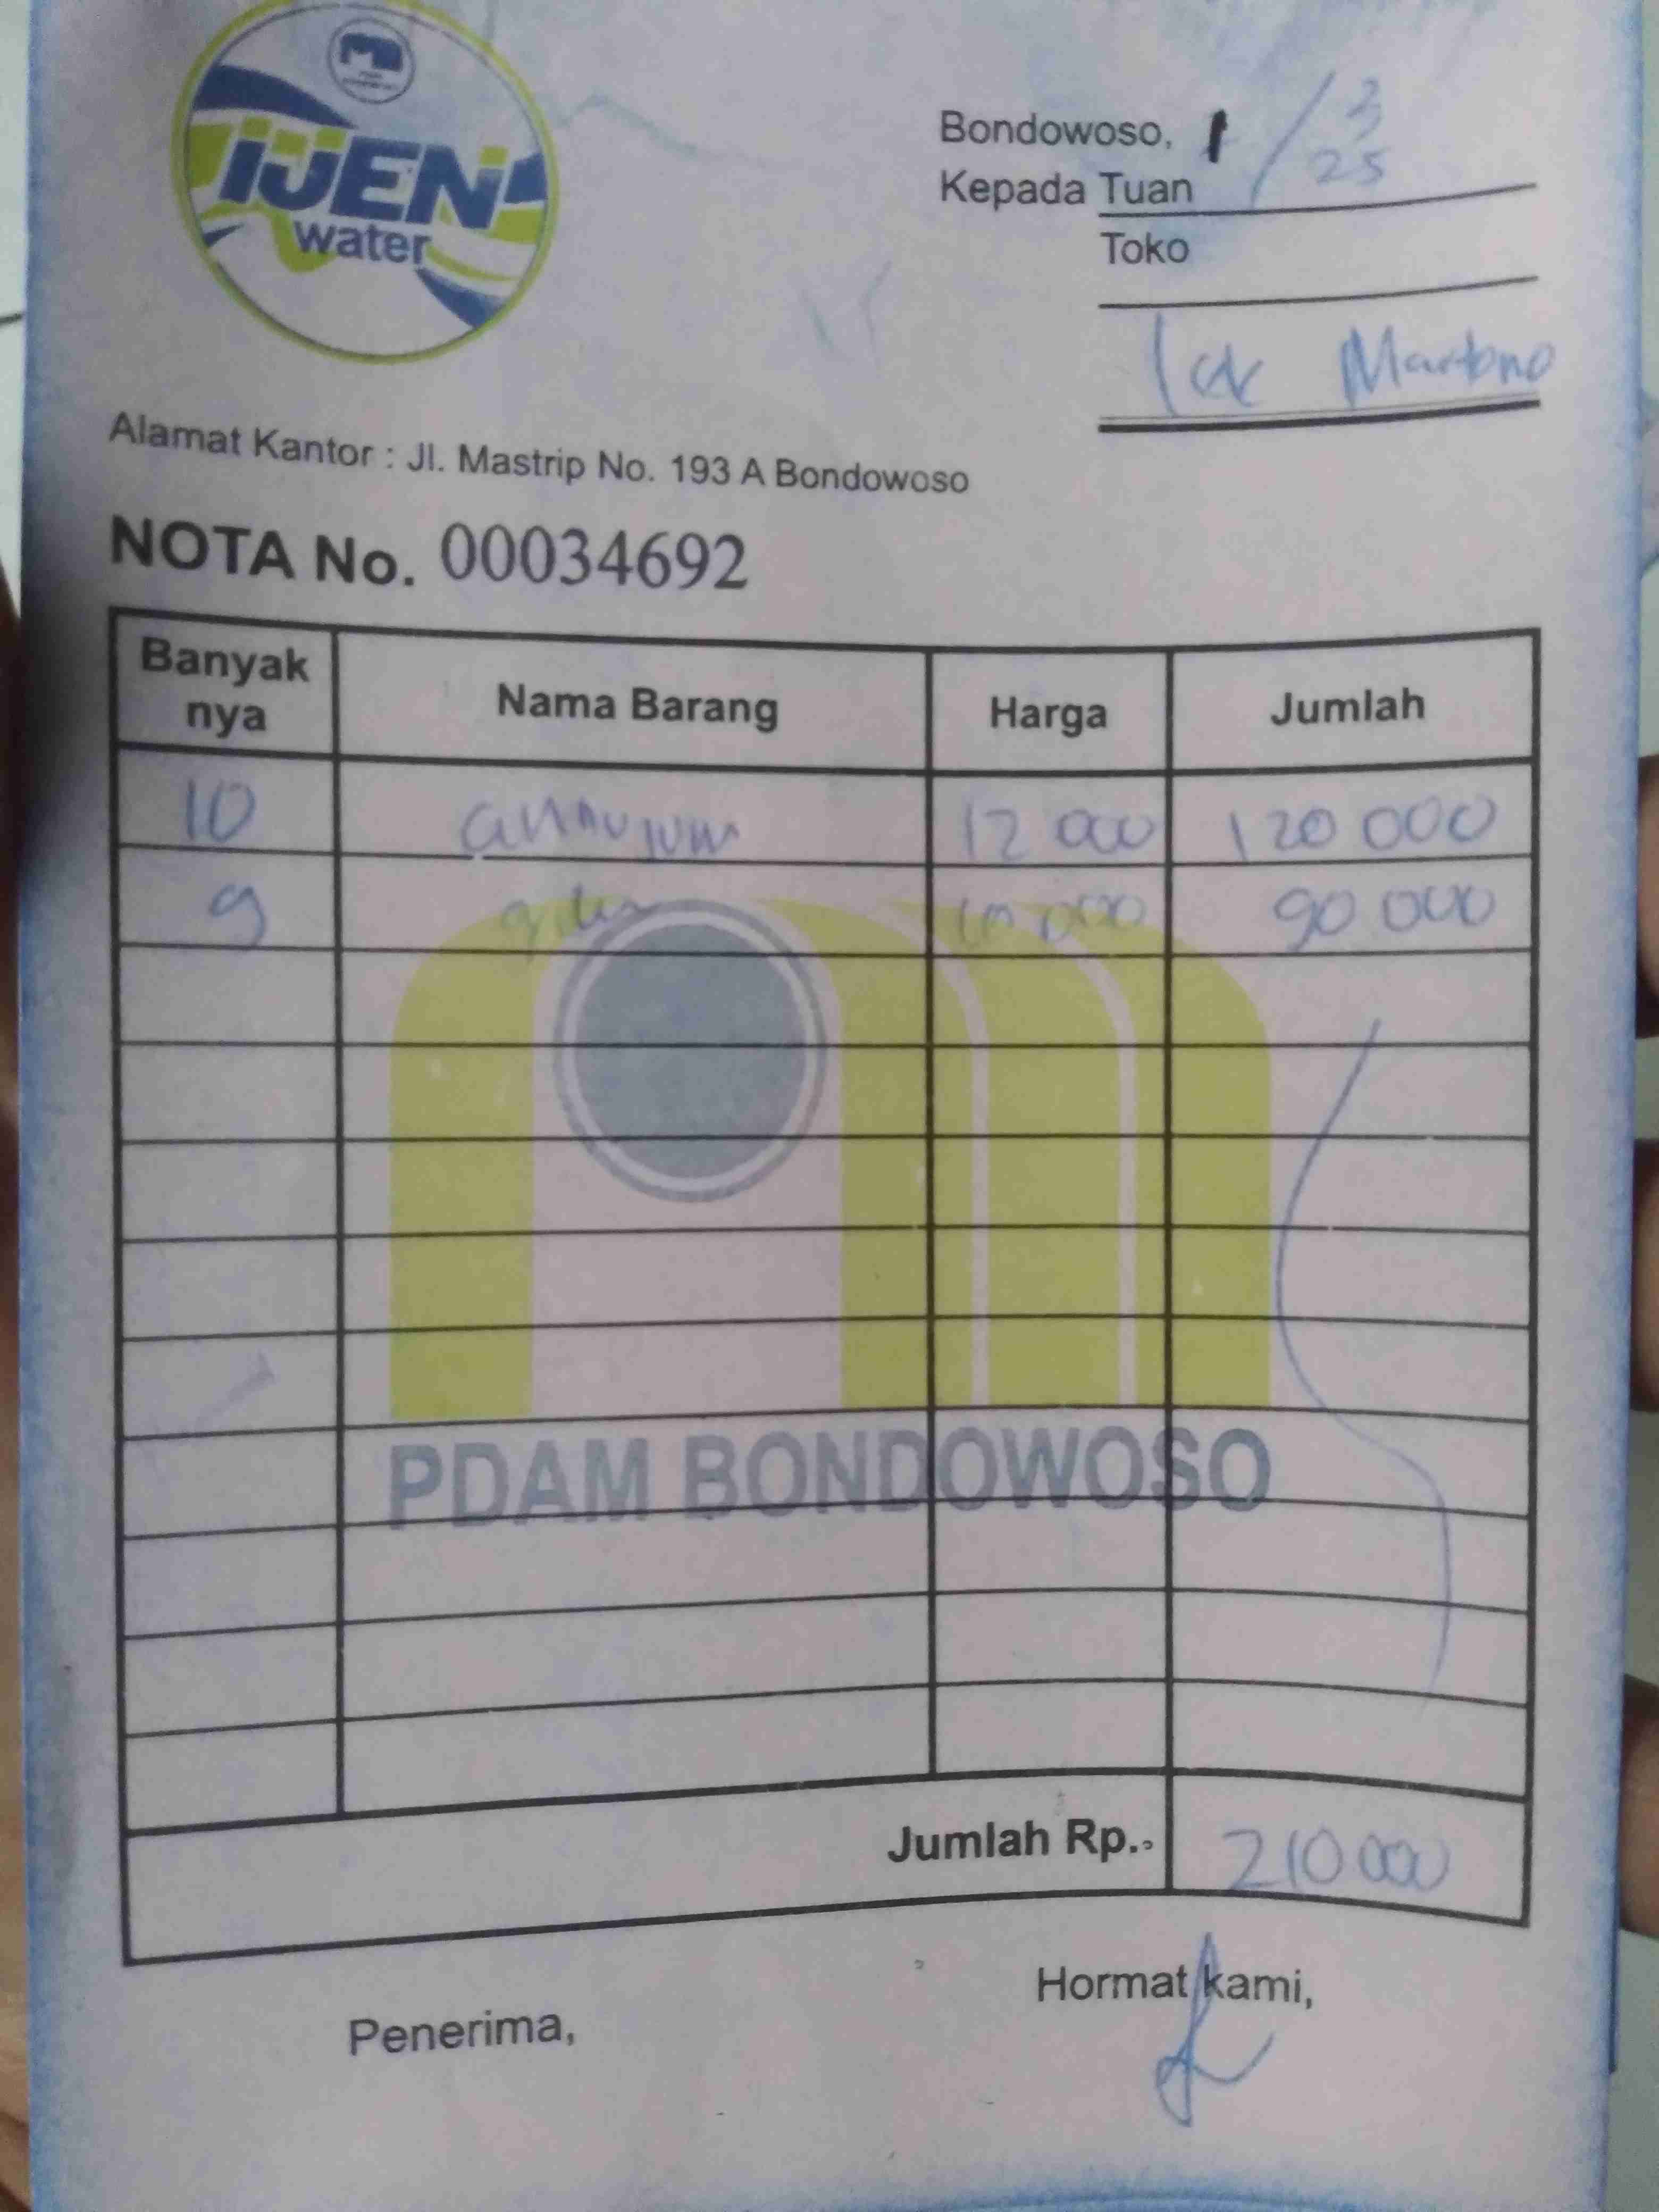 IJEN
water
Bondowoso, 1/3
25
Kepada Tuan
Toko
Martono
Alamat Kantor : Jl. Mastrip No. 193 A Bondowoso
NOTA No. 00034692
Banyak nya Nama Barang Harga Jumlah
10 12 000 120 000
9 10 000 90 000
PDAM BONDOWOSO
Jumlah Rp.. 210 000
Hormat kami,
Penerima,